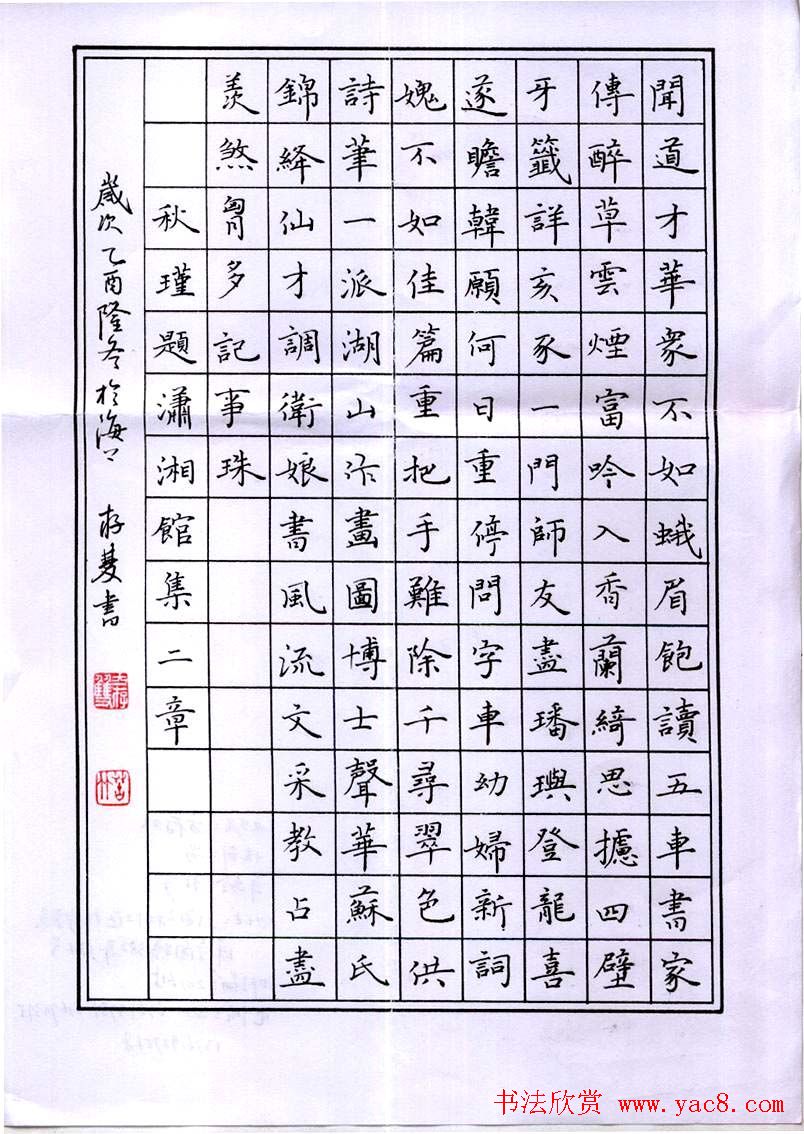 聞道才華衆不如蛾眉飽讀五車書家
傳醉草雲煙富吟入香蘭綺思攄四壁
牙籤詳亥豕一門師友盡璠璵登龍喜
遂瞻韓願何日重停問字車幼婦新詞
媿不如佳篇重把手難除千尋翠色供
詩筆一派湖山畫圖博士聲華蘇氏
錦絳仙才調衛娘書風流文采教占盡
羨煞胷多記事珠
秋瑾題瀟湘館集二章
歲次乙酉隆冬於海上 存雙書
书法欣赏 www.yac8.com